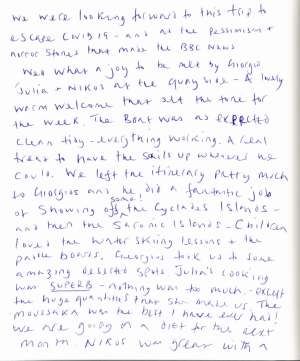 We were looking forward to this trip to
escape Covid 19 - and all the pessimism +
horror stories that make the BBC News
Well what a joy to be met by Giorgio
Julia + Nikos at the quay side - A lovely
warm welcome that set the tone for
the week. The Boat was as expected
clean tidy - everything working. A real
treat to have the sails up whenever we
could. We left the itinerary pretty much
to Giorgios and he did a fantastic job
of showing off some! the Cyclades Islands -
and then the Saronic Islands - Children
loved the water skiing lessons + the
paddle boards. Giorgios took us to some
amazing deserted spots Julia's cooking
was SUPERB - nothing was too much - except
the huge quantities that she made us The
moussaka was the best I have ever had!
We are going on a diet for the next
month. Nikos was great with a